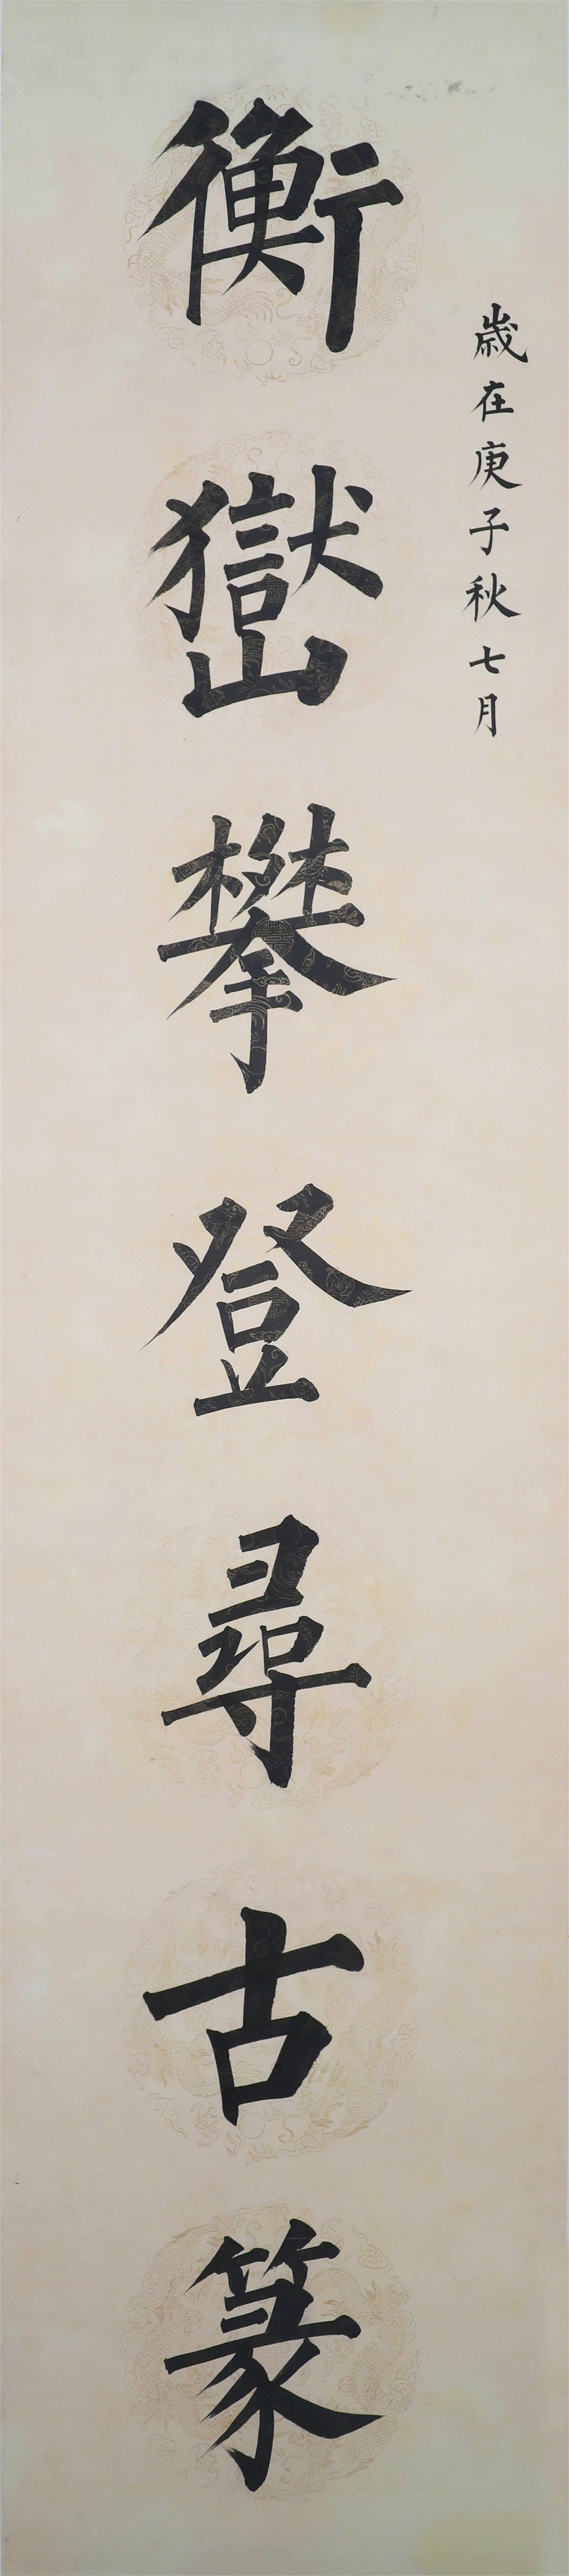 歲在庚子秋七月
衡嶽攀登尋古篆